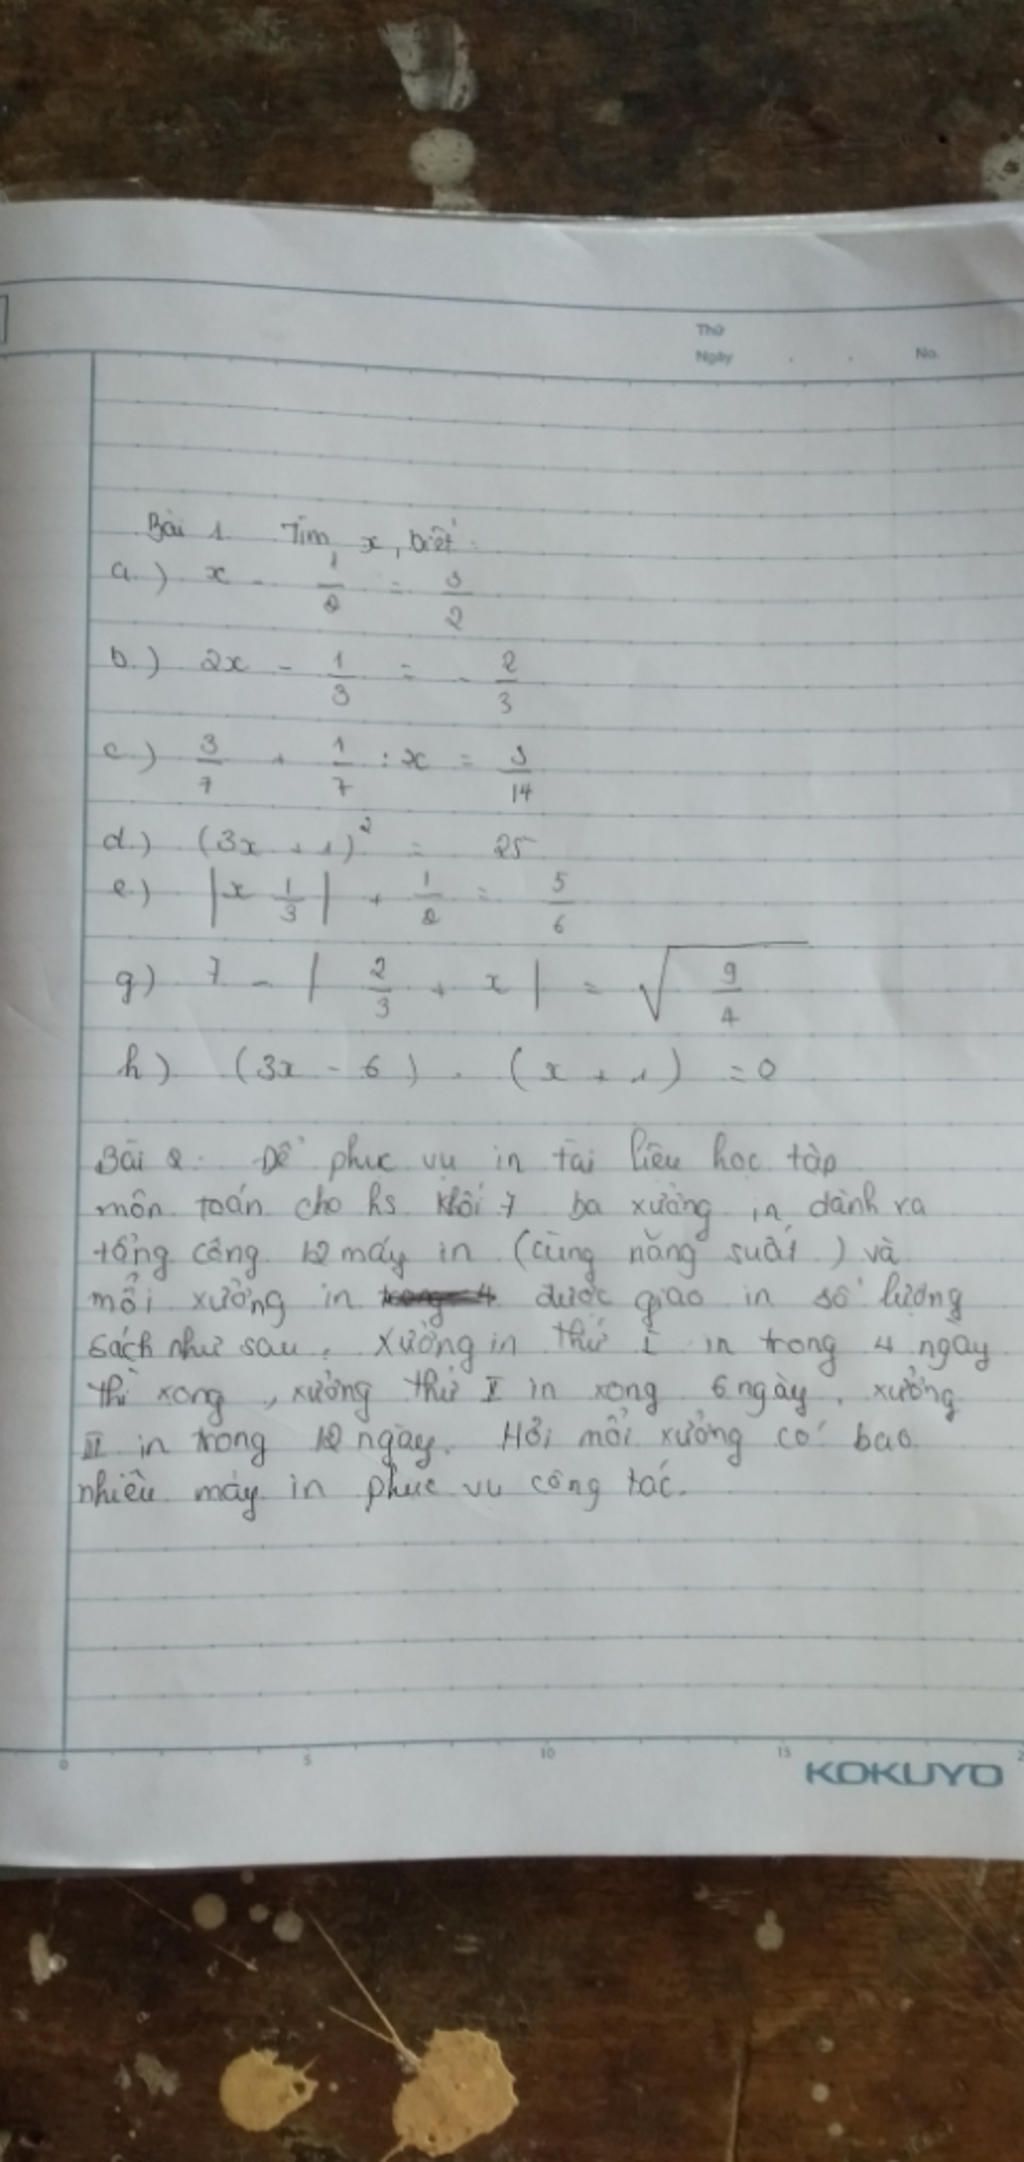 Thứ
Ngày . . No.
Bài 1. Tìm x, biết:
a.) x - 1/2 = 3/2
b.) 2x - 1/3 = - 2/3
c.) 3/7 + 1/7 : x = 3/14
d.) (3x + 1)² = 25
e.) |x 1/3| + 1/2 = 5/6
g) 7 - | 2/3 + x | = √(9/4)
h) (3x - 6) . (x + 1) = 0
Bài 2. Để phục vụ in tài liệu học tập
môn toán cho hs khối 7 ba xưởng in dành ra
tổng cộng 12 máy in (cùng năng suất) và
mỗi xưởng in được giao in số lượng
sách như sau. Xưởng in thứ I in trong 4 ngày
thì xong, xưởng thứ II in xong 6 ngày. xưởng
III in trong 12 ngày. Hỏi mỗi xưởng có bao
nhiêu máy in phục vụ công tác.
0 5 10 15 2
KOKUYO